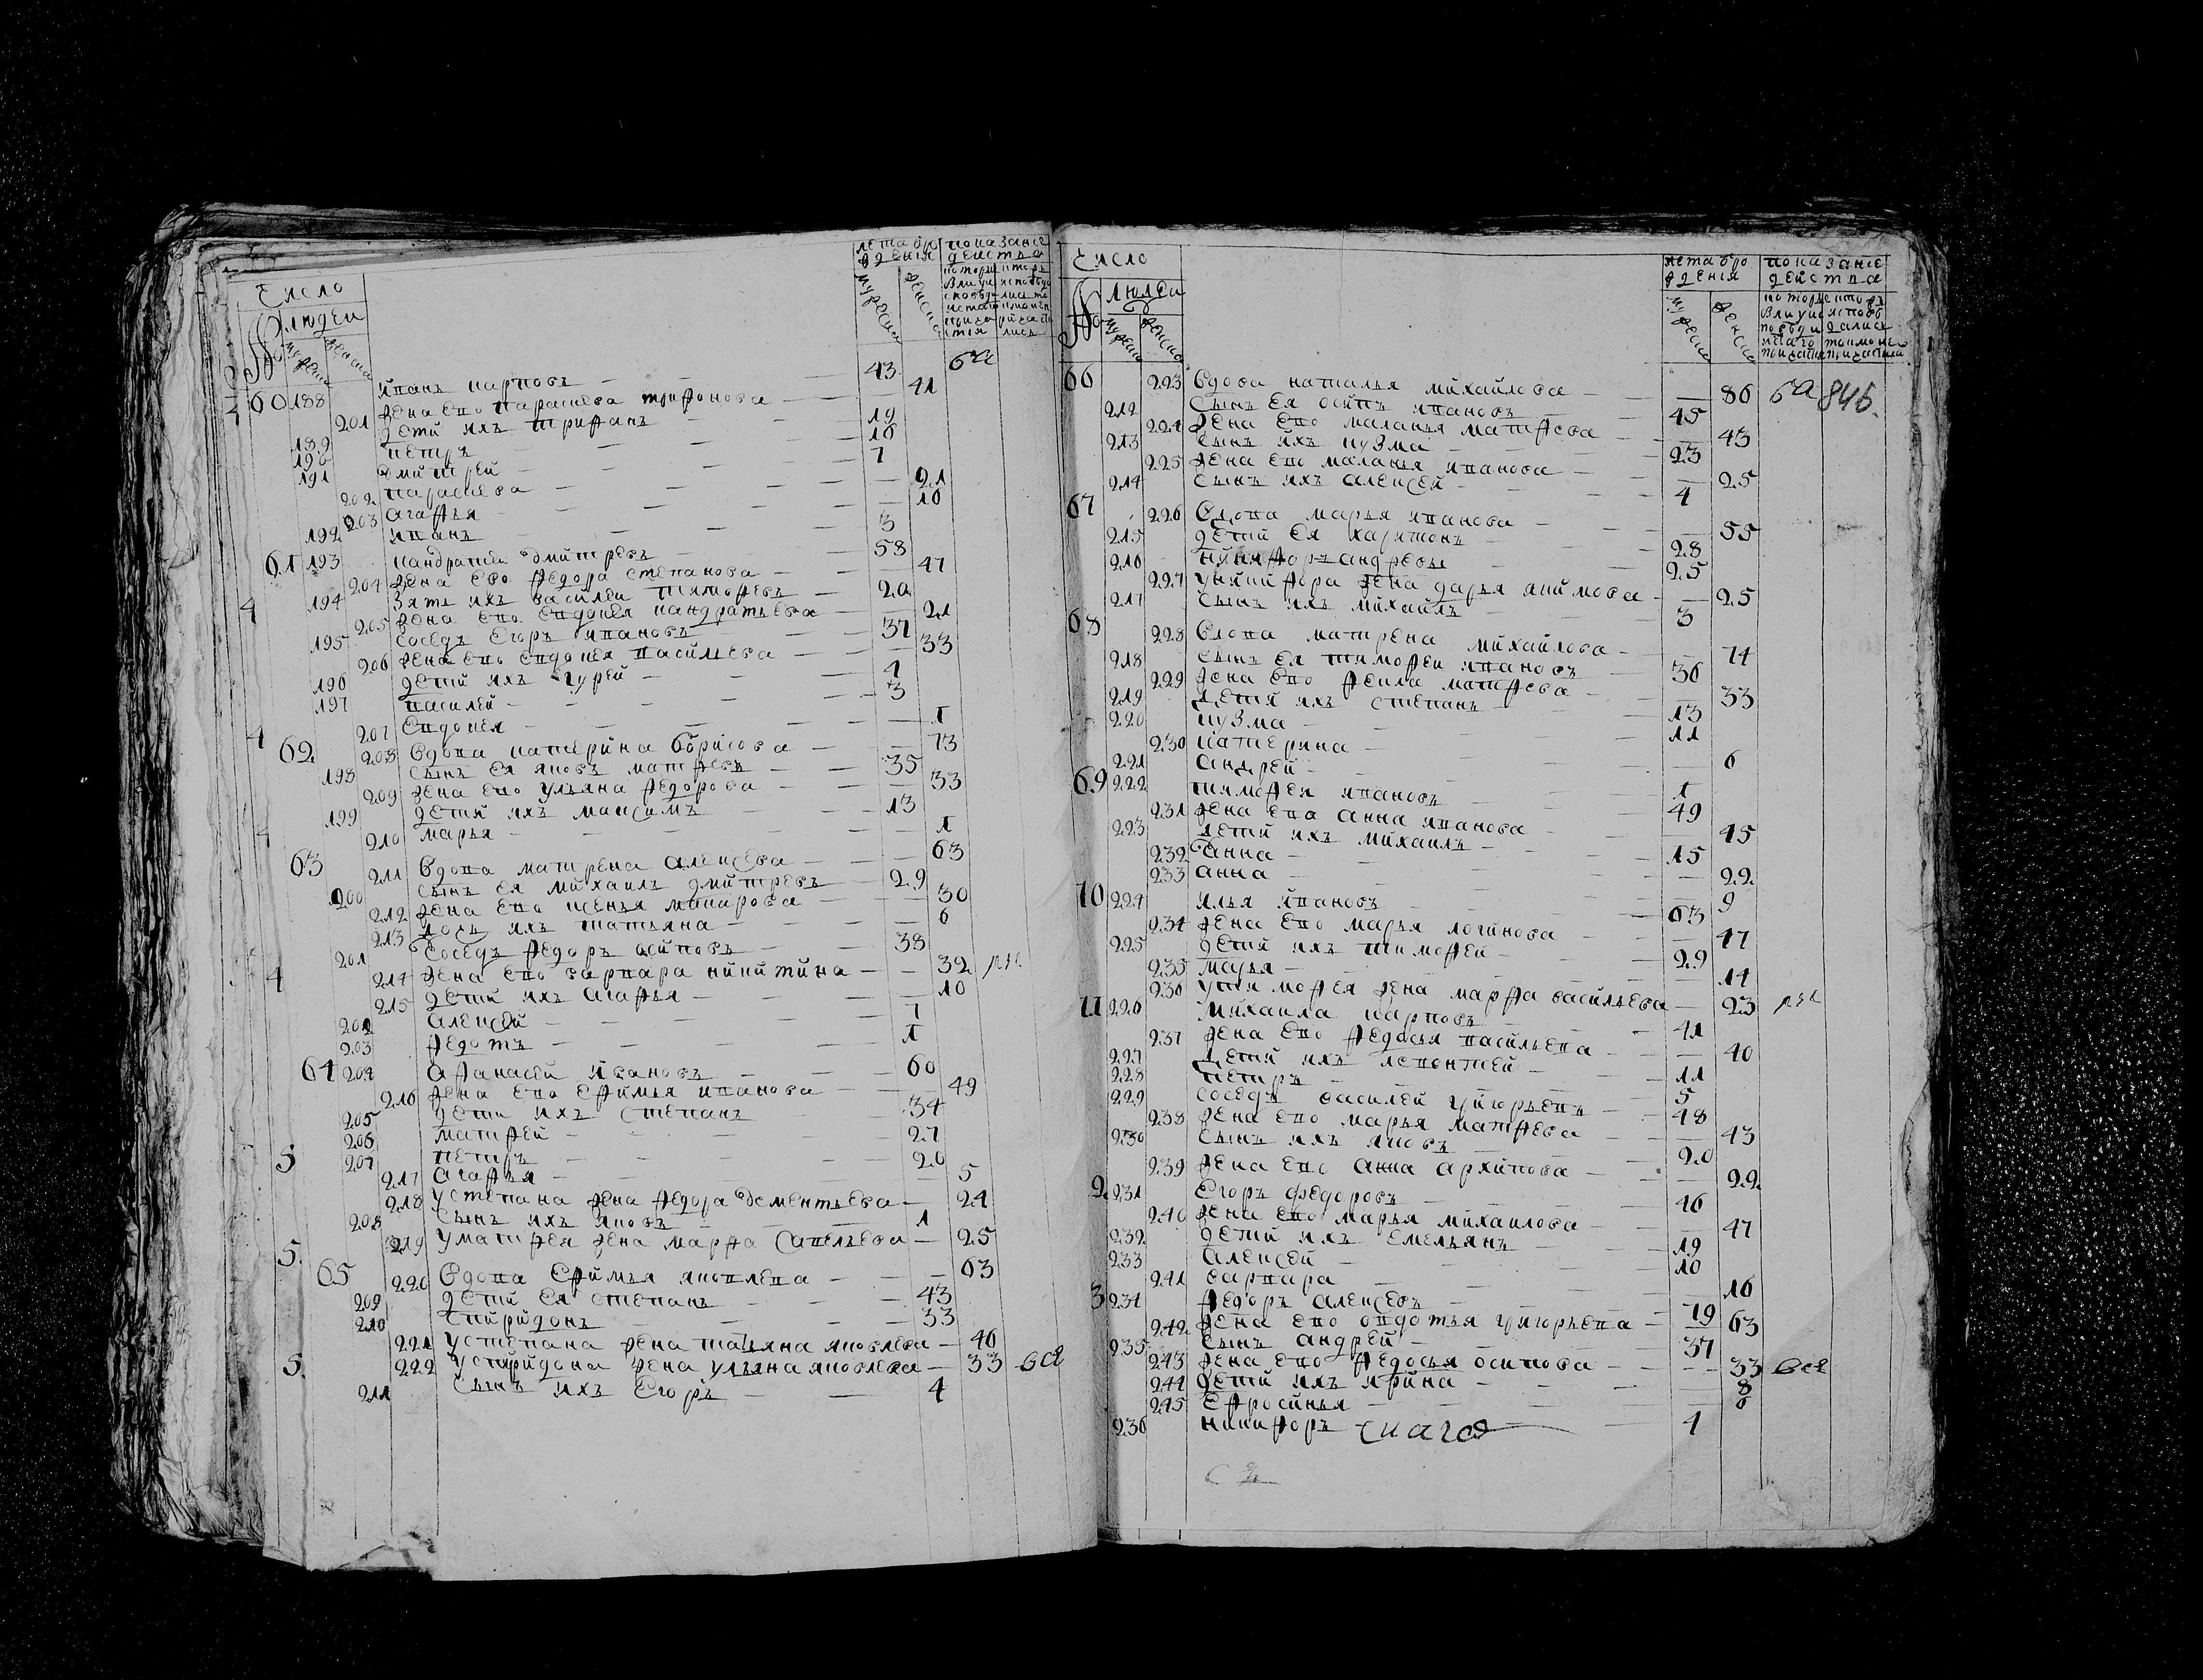 Число
людеи
№
мужеска
женска
лета рождения
мужеска
женска
показание действа
60 188 иванъ карповъ — 43 ба
201 жена ево парасковa трифонова — 41
дети ихъ трифанъ — 19
189 петръ — 16
190 дмитрей — 7
191
202 параскева — 21
203 агафья — 10
192 иванъ — 3
61 193 кандратей дмитревъ — 58
204 жена ево федора степанова — 47
194 зять ихъ василеи тимофевъ — 20
205 жена ево евдокея кандратьева — 21
195 соседъ егоръ ивановъ — 37
206 жена ево евдокея васильева — 33
196 дети ихъ гурей — 4
197 василей — 3
207 евдокея — 1
62 208 вдова катерина борисова — 73
198 сынъ ея яковъ матфевъ — 35
209 жена ево ульяна федорова — 33
199 дети ихъ максимъ — 13
210 марья — 1
63 211 вдова матрена алексева — 63
200 сынъ ея михаилъ дмитревъ — 29
212 жена ево ксенья макарова — 30
213 дочь ихъ татьяна — 6
201 соседъ федоръ осиповъ — 38
214 жена ево варвара никитина — 32
215 дети ихъ агафья — 10
202 алексей — 7
203 федотъ — 1
64 204 афанасей ивановъ — 60
216 жена ево ефимья иванова — 49
205 дети ихъ степанъ — 34
206 матфей — 27
207 петръ — 20
217 агафья — 5
218 устепана жена федора дементьева — 24
208 сынъ ихъ яковъ — 1
219 уматфея жена марфа савельева — 25
65 220 вдова ефимья яковлева — 63
209 дети ея степанъ — 43
210 спиридонъ — 33
221 устепана жена татьяна яковлева — 46
222 успиридона жена ульяна яковлева — 33 все
211 сынъ ихъ егоръ — 4
Число
людеи
№
мужеска
женска
лета рождения
мужеска
женска
показание действа
66 223 вдова наталья михайлова — 86 ба 846.
212 сынъ ея осипъ ивановъ — 45
224 жена ево маланья матфева — 43
213 сынъ ихъ кузма — 23
225 жена ево маланья иванова — 25
214 сынъ ихъ алексей — 4
67 226 вдова марья иванова — 55
215 дети ея харитонъ — 28
216 никифоръ андревы — 25
227 уникифора жена дарья якимова — 25
217 сынъ ихъ михайлъ — 3
68 228 вдова матрена михайлова — 74
218 сынъ ея тимофеи ивановъ — 36
229 жена ево фекла матфева — 33
219 дети ихъ степанъ — 13
220 кузма — 11
230 катерина — 6
221 андрей — 1
69 222 тимофеи ивановъ — 49
231 жена ево анна иванова — 45
223 дети ихъ михаилъ — 15
232 анна — 22
233 анна — 9
70 224 илья ивановъ — 63
234 жена ево марья логинова — 47
225 дети ихъ тимофей — 29
235 марья — 14
236 утимофея жена марфа васильева — 23
71 226 михаила карповъ — 41
237 жена ево федосья васильева — 40
227 дети ихъ леонтей — 11
228 петръ — 5
229 соседъ василей григорьевъ — 48
238 жена ево марья матфева — 43
230 сынъ ихъ яковъ — 20
239 жена ево анна архипова — 22
2 231 егоръ федоровъ — 46
240 жена ево марья михаилова — 47
232 дети ихъ емельянъ — 19
233 алексей — 10
241 варвара — 16
3 234 федоръ алексевъ — 79
242 жена ево овдотья григорьева — 63
235 сынъ андрей — 37
243 жена ево федосья осипова — 33 все
244 дети ихъ ирина — 8
245 ефросинья — 6
236 никифоръ — 4